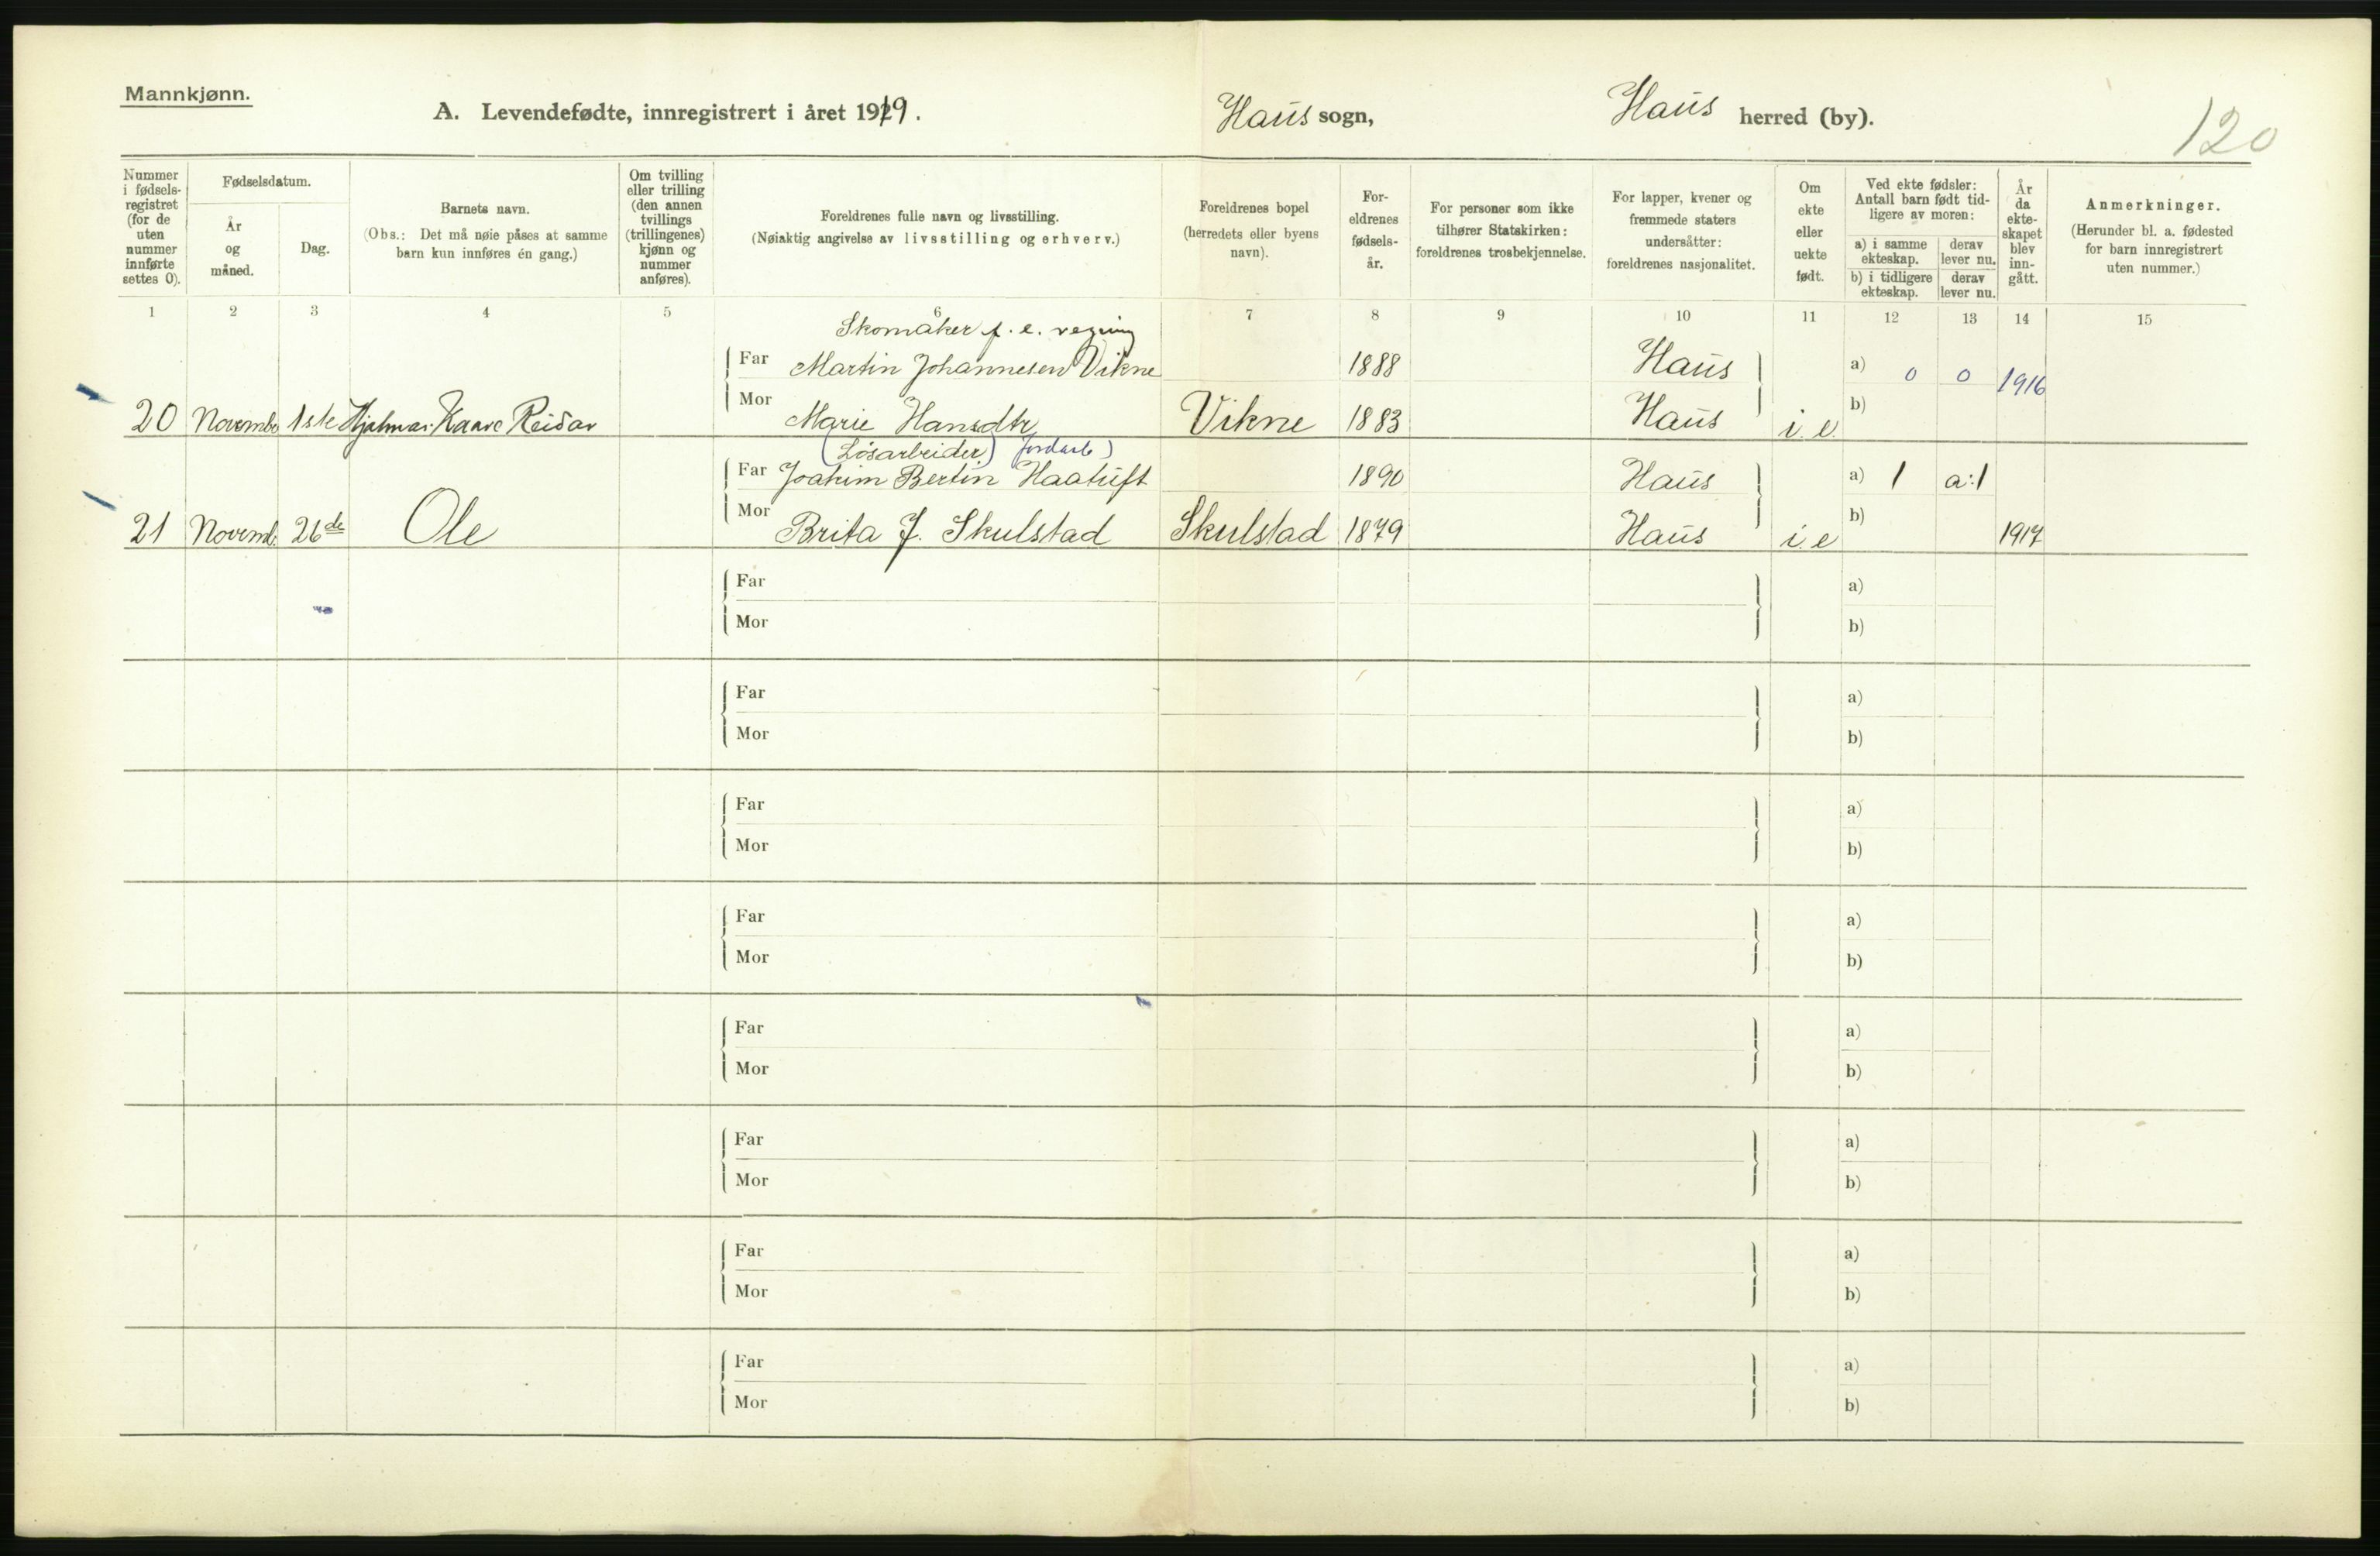 Mannkjønn.
A. Levendefødte, innregistrert i året 1919.
Haus sogn,
Haus herred (by).
120
Nummer i fødsels- registret (for de uten nummer innførte settes 0).
Fødselsdatum.
År og måned.
Dag.
Barnets navn.
(Obs.: Det må nøie påses at samme barn kun innføres én gang.)
Om tvilling eller trilling (den annen tvillings (trillingenes) kjønn og nummer anføres).
Foreldrenes fulle navn og livsstilling.
(Nøiaktig angivelse av livsstilling og erhverv.)
Foreldrenes bopel (herredets eller byens navn).
For- eldrenes fødsels- år.
For personer som ikke tilhører Statskirken: foreldrenes trosbekjennelse.
For lapper, kvener og fremmede staters undersåtter: foreldrenes nasjonalitet.
Om ekte eller uekte født.
Ved ekte fødsler: Antall barn født tid- ligere av moren:
a) i samme ekteskap.
derav lever nu.
b) i tidligere ekteskap.
derav lever nu.
År da ekte- skapet blev inn- gått.
Anmerkninger.
(Herunder bl. a. fødested for barn innregistrert uten nummer.)
1 2 3 4 5 6 7 8 9 10 11 12 13 14 15
Skomaker f. e. regning
Far Martin Johannesen Vikne 1888 Haus a) 0 0 1916
20 Novembr 1ste Hjalmar Kaare Reidar Mor Marie Hansdtr Vikne 1883 Haus i. e. b)
(Løsarbeider) Jordarb)
Far Joakim Bertin Haatuft 1890 Haus a) 1 a:1
21 Novemb. 26de Ole Mor Brita J. Skulstad Skulstad 1879 Haus i. e b) 1917
Far a)
Mor b)
Far a)
Mor b)
Far a)
Mor b)
Far a)
Mor b)
Far a)
Mor b)
Far a)
Mor b)
Far a)
Mor b)
Far a)
Mor b)